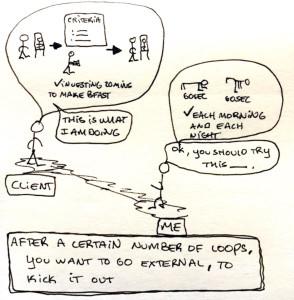 CRITERIA
✓INVESTING TIMING
TO MAKE BFAST
THIS IS WHAT
I AM DOING
60SEC
60SEC
✓EACH MORNING
AND EACH
NIGHT
OK, YOU SHOULD TRY
THIS __.
CLIENT
ME
AFTER A CERTAIN NUMBER OF LOOPS,
YOU WANT TO GO EXTERNAL, TO
KICK IT OUT